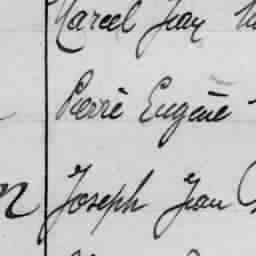 Marcel Jean
Pierre Eugène
Joseph Jean